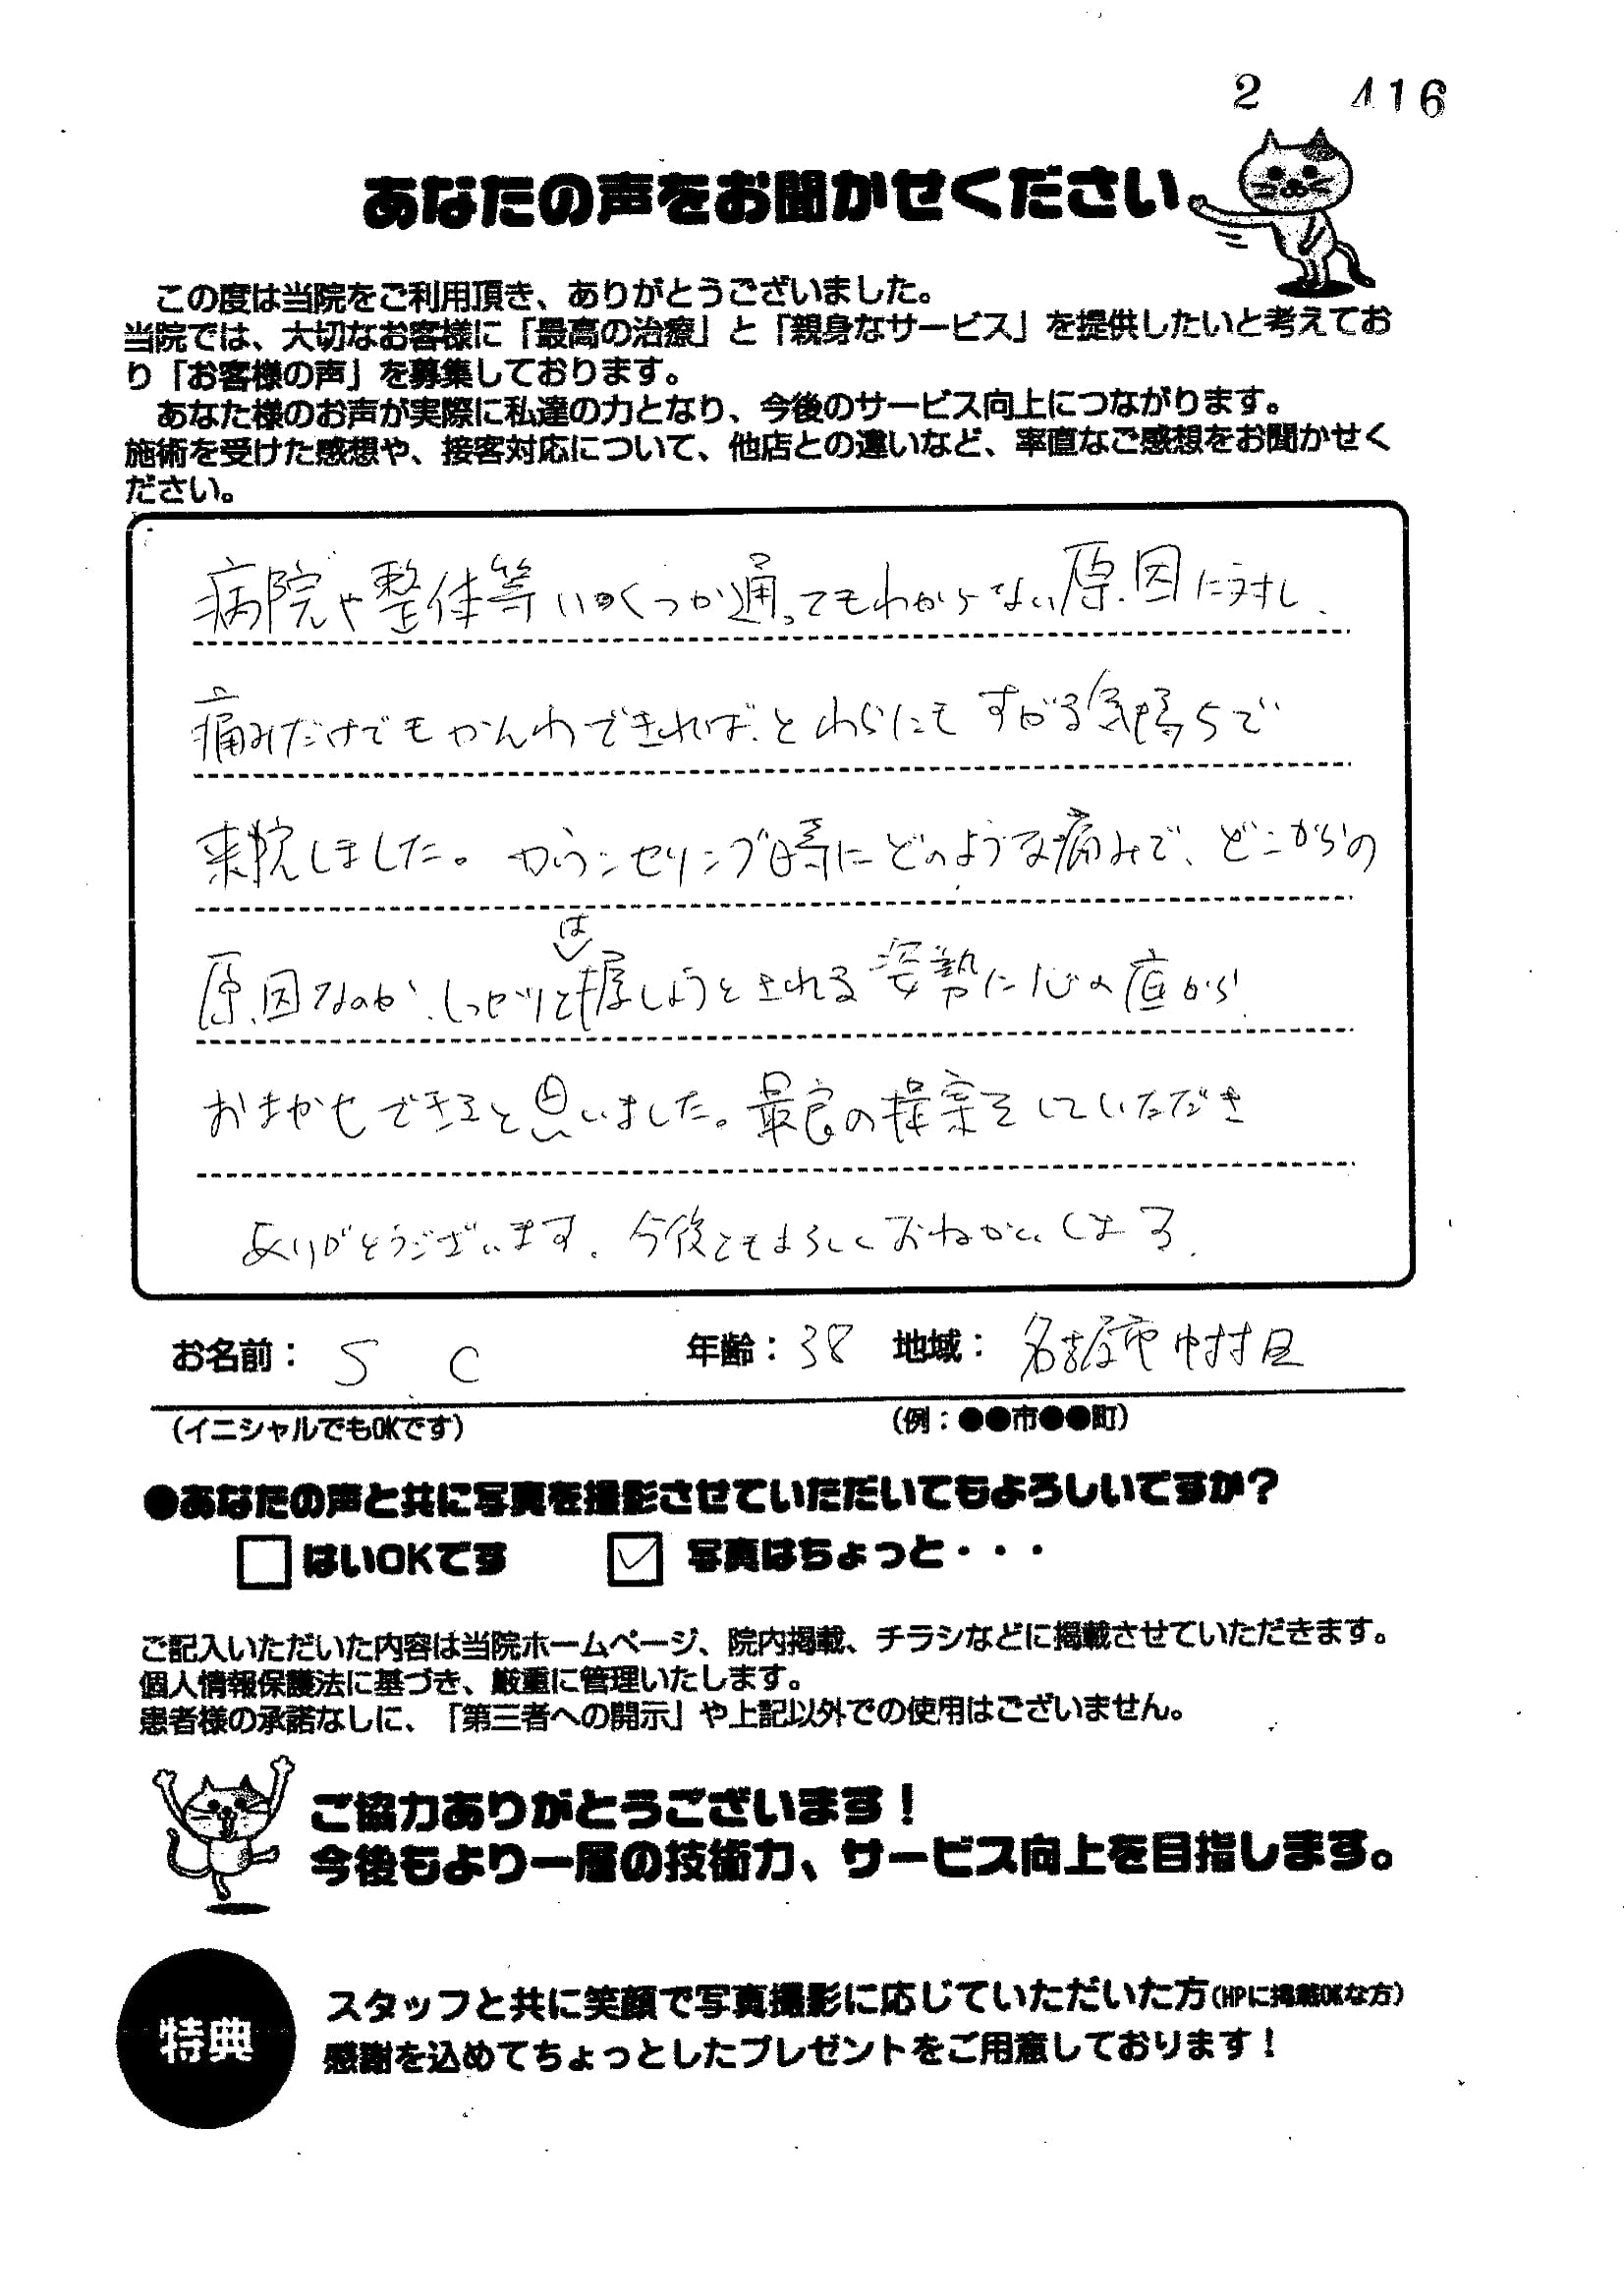 2 416
あなたの声をお聞かせください
この度は当院をご利用頂き、ありがとうございました。
当院では、大切なお客様に「最高の治療」と「親身なサービス」を提供したいと考えてお
り「お客様の声」を募集しております。
あなた様のお声が実際に私達の力となり、今後のサービス向上につながります。
施術を受けた感想や、接客対応について、他店との違いなど、率直なご感想をお聞かせく
ださい。
病院や整体等いくつか通ってもわからない原因に対し、
痛みだけでもかんわできれば、とわらにもすがる気持ちで
来院しました。カウンセリング時にどのような痛みで、どこからの
原因なのか、しっかりとは握しようとされる姿勢に心の底から
おまかせできると思いました。最良の提案をしていただき
ありがとうございます。今後ともよろしくおねがいします。
お名前： S. C 年齢：38 地域： 名古屋市中村区
（イニシャルでもOKです） （例：●●市●●町）
●あなたの声と共に写真を撮影させていただいてもよろしいですか？
はいOKです 写真はちょっと・・・
ご記入いただいた内容は当院ホームページ、院内掲載、チラシなどに掲載させていただきます。
個人情報保護法に基づき、厳重に管理いたします。
患者様の承諾なしに、「第三者への開示」や上記以外での使用はございません。
ご協力ありがとうございます！
今後もより一層の技術力、サービス向上を目指します。
特典
スタッフと共に笑顔で写真撮影に応じていただいた方（HPに掲載OKな方）
感謝を込めてちょっとしたプレゼントをご用意しております！